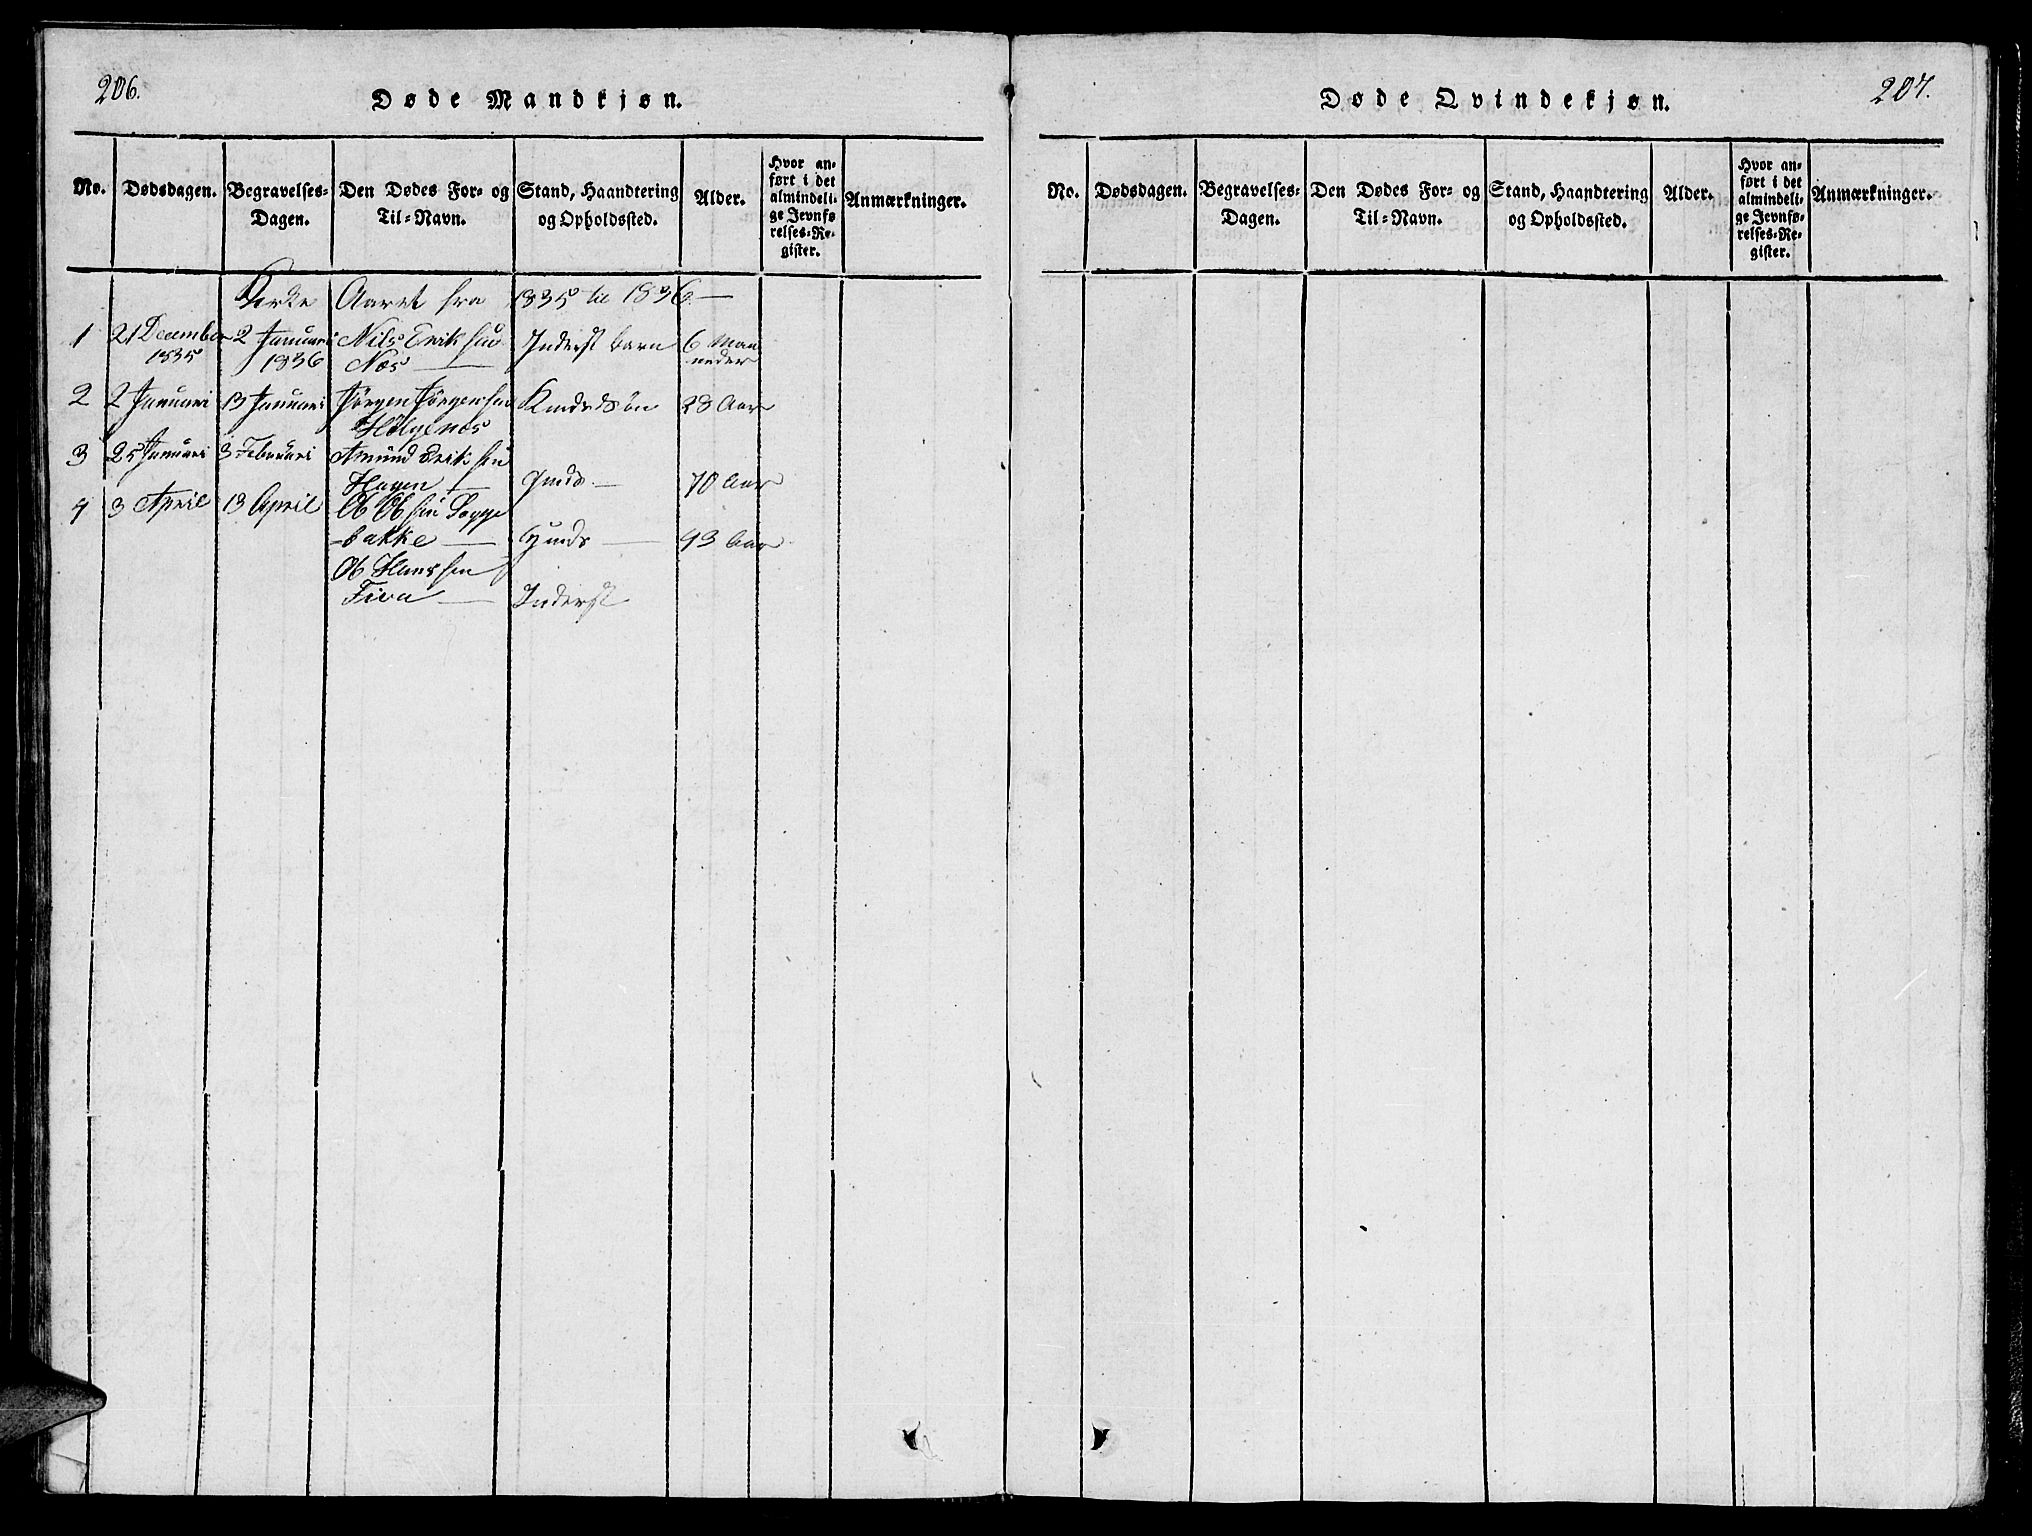 206.
Døde Mandkjøn.
No. Dødsdagen. Begravelses-Dagen. Den Dødes For- og Til-Navn. Stand, Haandtering og Opholdssted. Alder. Hvor anført i det almindelige Jevnførelses-Register. Anmærkninger.
Kirke Aaret fra 1835 til 1836
1 21 December 2 Januari Nils Eriksen Inderst barn 6 Maa
1835 1836 Næs neder
2 2 Januari 13 Januari Jørgen Jørgensen 28 Aar
Helgenæs
3 25 Januari 3 Februari Amund Eriksen
Hagen 70 Aar
4 3 April 13 April Ol Olsen
bakke 93 Aar
Ol Hanssen
Fiva Inderst
207.
Døde Qvindekjøn.
No. Dødsdagen. Begravelses-Dagen. Den Dødes For- og Til-Navn. Stand, Haandtering og Opholdssted. Alder. Hvor anført i det almindelige Jevnførelses-Register. Anmærkninger.